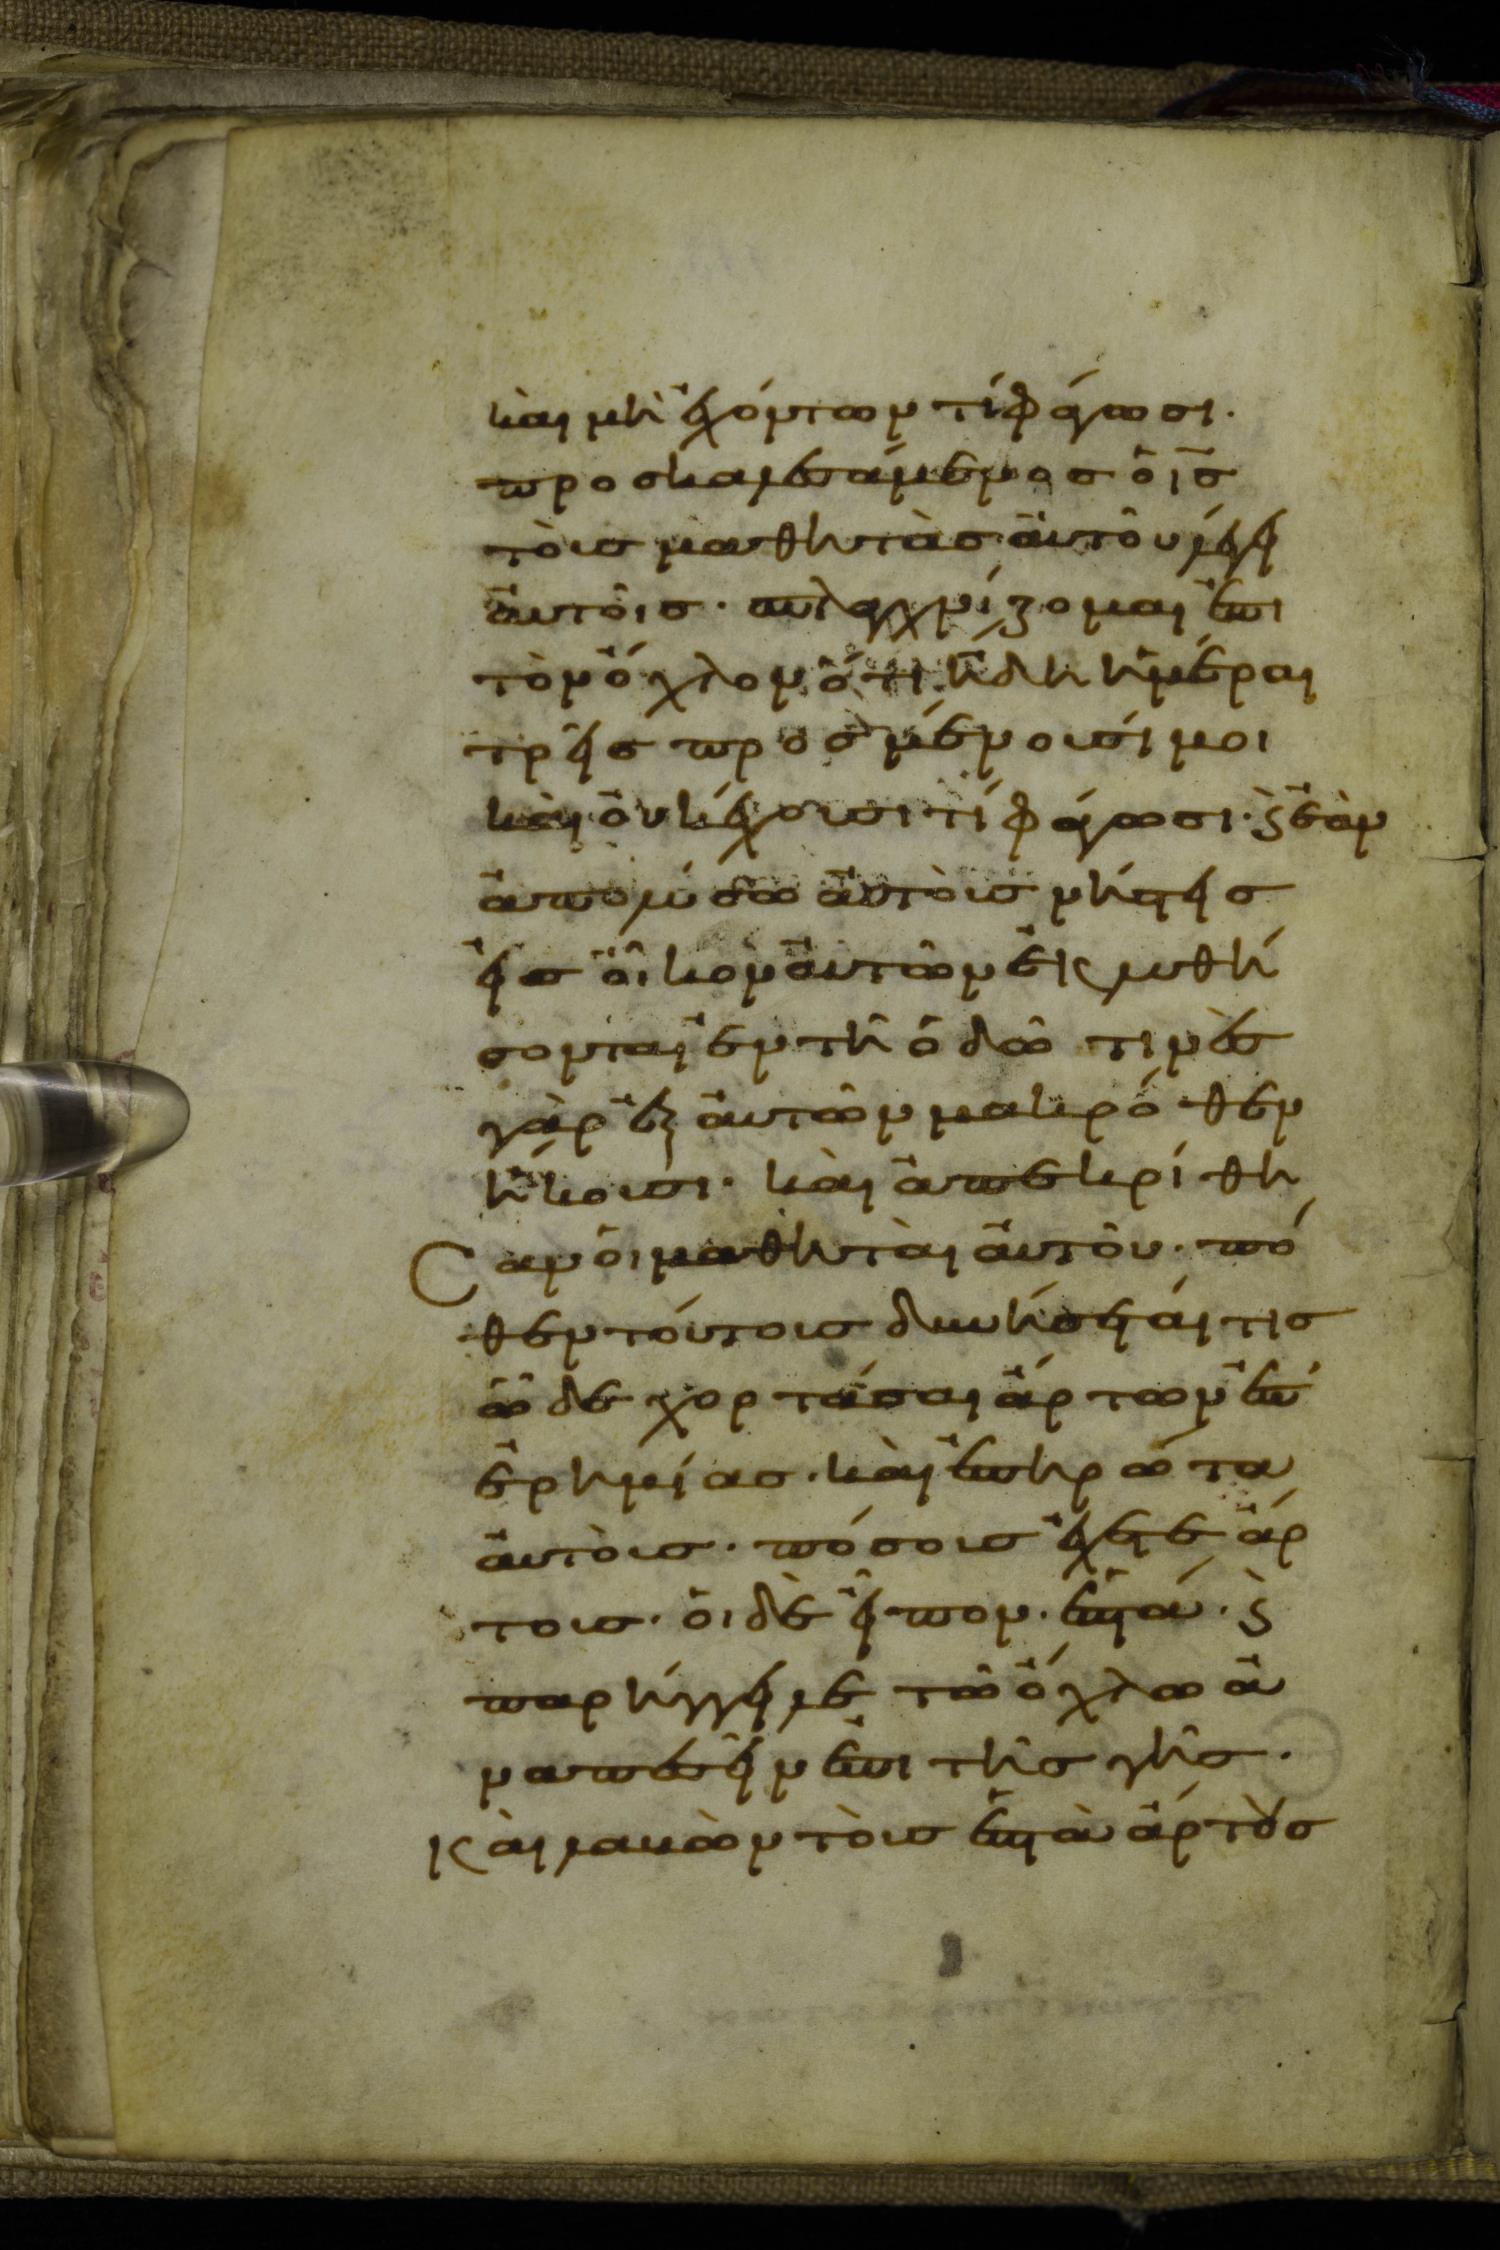 καὶ μὴ ἐχόντων τί φάγωσι·
προσκαλεσάμενος ὁ ι̅ς̅
τοὺς μαθητὰς αὐτοῦ λέγει
αὐτοῖς· σπλαγχνίζομαι ἐπὶ
τὸν ὄχλον ὅτι ἤδη ἡμέραι
τρεῖς προσμένουσί μοι
καὶ οὐκ ἔχουσι τί φάγωσι· ϗ ἐὰν
ἀπολύσω αὐτοὺς νήστεις
εἰς οἶκον αὐτῶν ἐκλυθή
σονται ἐν τῆ ὁδῶ τινὲς
γὰρ ἐξ αὐτῶν μακρόθεν
ἥκουσι· καὶ ἀπεκρίθη
Cαν οἱ μαθηταὶ αὐτοῦ· πό
θεν τούτους δυνήσεταί τις
ὧδε χορτάσαι ἄρτων ἐπ'
ἐρημίας· καὶ ἐπηρώτα
αὐτοὺς· πόσους ἔχετε ἄρ
τους· οἱ δὲ εἶπον· ἑπτά· ϗ
παρήγγειλε τῶ ὄχλω ἀ
ναπεσεῖν ἐπὶ τῆς γῆς·
Καὶ λαβὼν τοὺς ἑπτὰ ἄρτους